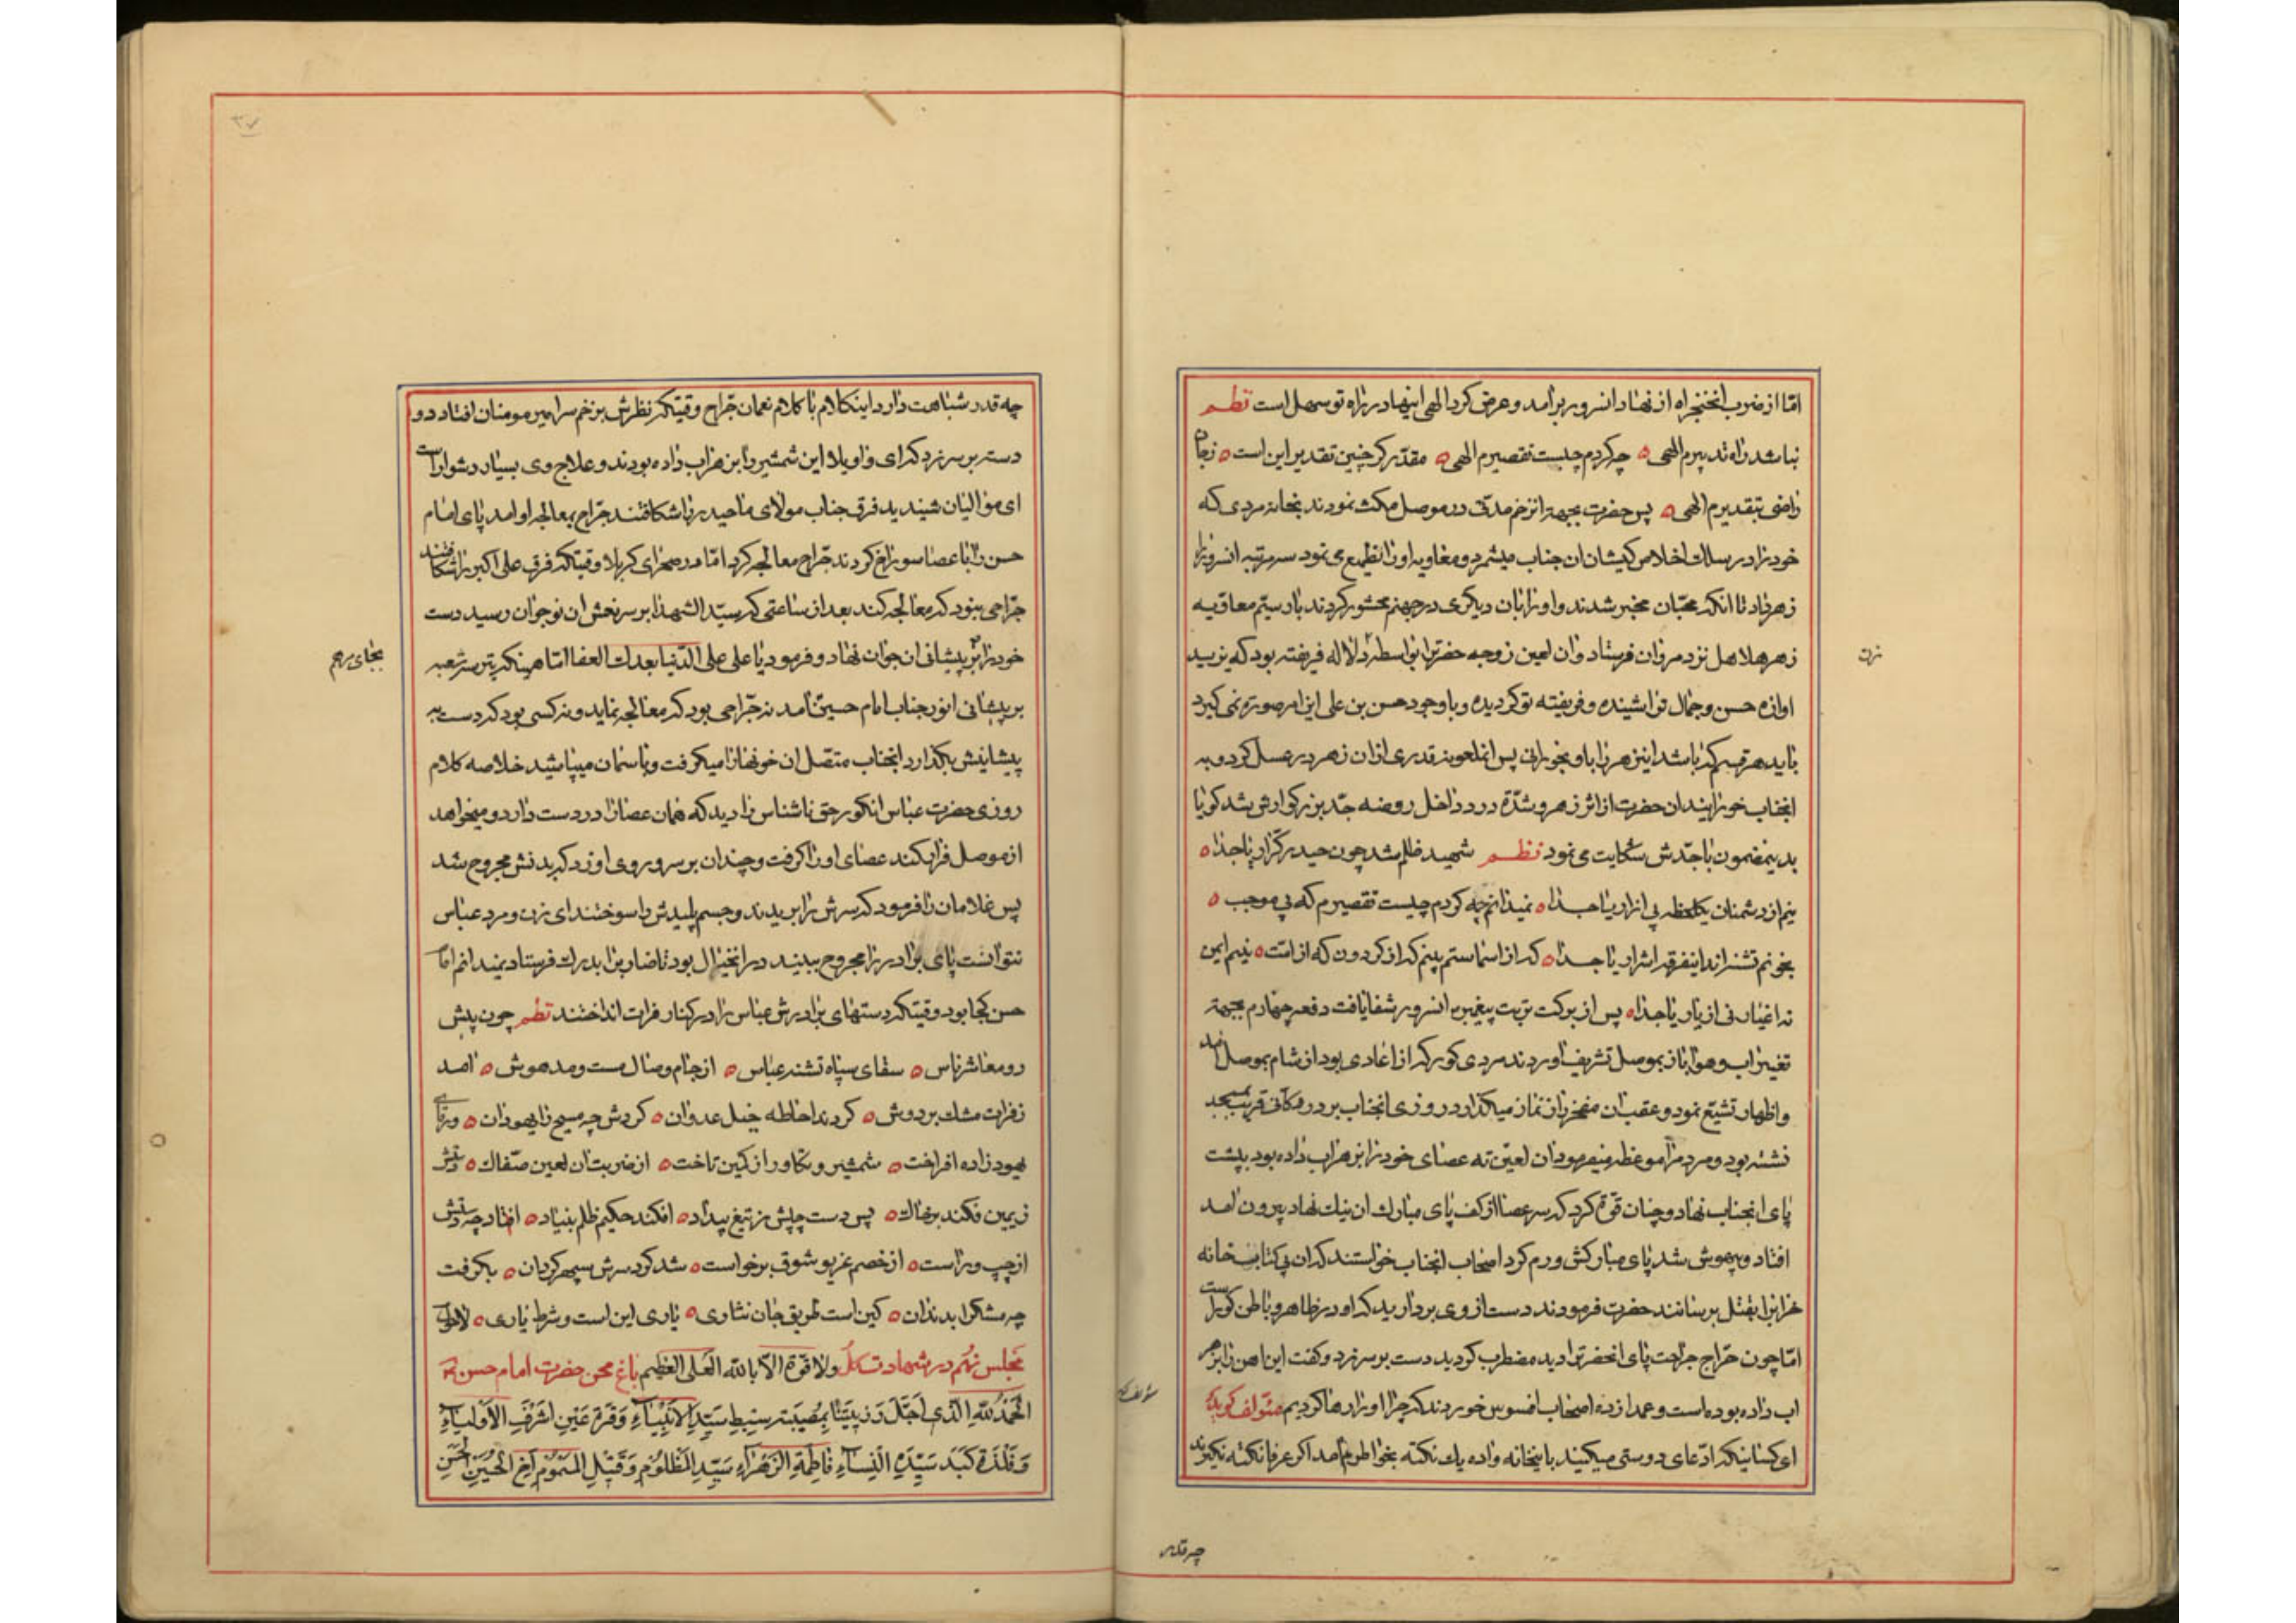 اما از ضرب خنجر اه از نهاد انسرور برآمد و عرض کرد الهی اینها در راه تو سهل است نظم
نباشد راه تدبیرم الهی چه کردم چیست تقصیرم الهی مقدر کر چنین تقدیر این است
راضی بتقدیرم الهی پس حضرت بجهة انزخم مدتی در موصل مکث نمودند بخانه مردی که
خود را در سلک اخلاص کیشان ان جناب میشمرد و معاویه او را تطمیع می نمود سه مرتبه انسرور را
زهر داد تا انکه محبان مخبر شدند و او را بان دیکری در جهنم محشور کردند بار سیم معاویه
زهر هلاهل نزد مروان فرستاد و ان لعین زوجه حضرت را بواسطه دلاله فریفته بود که یزید
اوازه حسن و جمال ترا شنیده و فریفته تو کردیده و با وجود حسن بن علی این امر صورة نمی کیرد
باید هر قسم که باشد اینزهر را باو بخورانی پس انملعونه قدری از ان زهر در عسل کرد و به
انجناب خورانید ان حضرت از اثر زهر و شدة درد داخل روضه جد بزرکوارش شد کویا
بدینمضمون با جدش شکایت می نمود نظم شهید ظلم شد چون حیدر کرار یا جداه
نیم از دشمنان یکلحظه بی ازار یا جداه نمیدانم چه کردم چیست تقصیرم که بی موجب
بخونم تشنه اند اینفرقه اشرار یا جداه که از اسما ستم بینم که از کردون که از امت نیم ایمن
نه اغیار نی از یار یا جداه پس از برکت تربت پیغمبر انسرور شفا یافت دفعه چهارم بجهة
تغییر اب و هوا باز بموصل تشریف اوردند مردی کور که از اعادی بود از شام بموصل امد
و اظهار تشیع نمود و عقب ان مفخر راز نماز میکذارد روزی انجناب بر در مکانی قریب بمسجد
نشسته بود و مردم را موعظه میفرمود ان لعین ته عصای خود را بزهراب داده بود بپشت
پای انجناب نهاد و چنان قوة کرد که سر عصا از کف پای مبارک ان نیک نهاد بیرون امد
افتاد و بیهوش شد پای مبارکش ورم کرد اصحاب انجناب خواستند که ان بی کتاب خانه
خراب را بقتل برسانند حضرت فرمودند دست از وی بردارید که او در ظاهر و باطن کور است
اما چون جراح جراحت پای انحضرت را دید مضطرب کردید دست بر سر زد و کفت این اهن را بزهر
اب داده بوده است و عمدا زده اصحاب افسوس خوردند که چرا او را رها کردیم مؤلف کوید
ای کسانیکه ادعای دوستی میکنید باینخانه واده یک نکته بخواطرم امد اکر عرفا نکته نکیرند
زن
چه قدر
چه قدر شباهت دارد اینکلام با کلام نعمان جراح وقتیکه نظرش بزخم سر امیر مومنان افتاد دو
دسته بر سر زد که ای واویلا این شمشیر را بزهراب داده بودند و علاج وی بسیار دشوار است
ای موالیان شنیدید فرق جناب مولای ما حیدر را شکافتند جراح بمعالجه او امد پای امام
حسن را با عصا سوراخ کردند جراح معالجه کرد اما در صحرای کربلا وقتیکه فرق علی اکبر را شکافتند
جراحی نبود که معالجه کند بعد از ساعتی که سید الشهدا بر سر نعش ان نوجوان رسید دست
خود را بر پیشانی ان جوان نهاد و فرمود یا علی علی الدنیا بعدک العفا اما همینکه تیر سه شعبه
بر پیشانی انور جناب امام حسین امد نه جراحی بود که معالجه نماید و نه کسی بود که دست به
پیشانیش بکذارد انجناب متصل ان خونها را میکرفت و باسمان میپاشید خلاصه کلام
روزی حضرت عباس انکور حق ناشناس را دید که همان عصا را در دست دارد و میخواهد
از موصل فرار کند عصای او را کرفت و چندان بر سر و روی او زد که بدنش مجروح شد
پس غلامان را فرمود که سرش را بریدند و جسم پلیدش را سوختند ای زن و مرد عباس
نتوانست پای برادر را مجروح ببیند در انخیال بود تا ضارب را بدرک فرستاد نمیدانم امام
حسن کجا بود وقتیکه دستهای برادرش عباس را در کنار فرات انداختند نظم چون پیش
رو معاشر ناس سقای سپاه تشنه عباس از جام وصال مست و مدهوش امد
ز فرات مشک بر دوش کردند احاطه خیل عدوان کردش چه مسیح را یهودان
یهود زاده افراخت شمشیر و تکاور از کین تاخت از ضربت ان لعین سفاک دستش
زیمین فکند بر خاک پس دست چپش ز تیغ بیداد افکند حکیم ظلم بنیاد افتاد چه دستش
از چپ و راست از خصم غریو شوق برخواست شد کرد سرش سپهر کردان بکرفت
چه مشک را بدندان کین است طریق جان نثاری یاری این است و شرط یاری لاحول
ولا قوة الا بالله العلی العظیم مجلس نهم در شهادت کل باغ محن حضرت امام حسن
الحمد لله الذی اجل رزیتنا بمصیبة سبط سید الانبیاء و قرة عین اشرف الاولیاء
و فلذة کبد سیدة النساء فاطمة الزهراء سید المظلوم و قتیل المسموم اخ الحسین الحسن
بجای مرهم